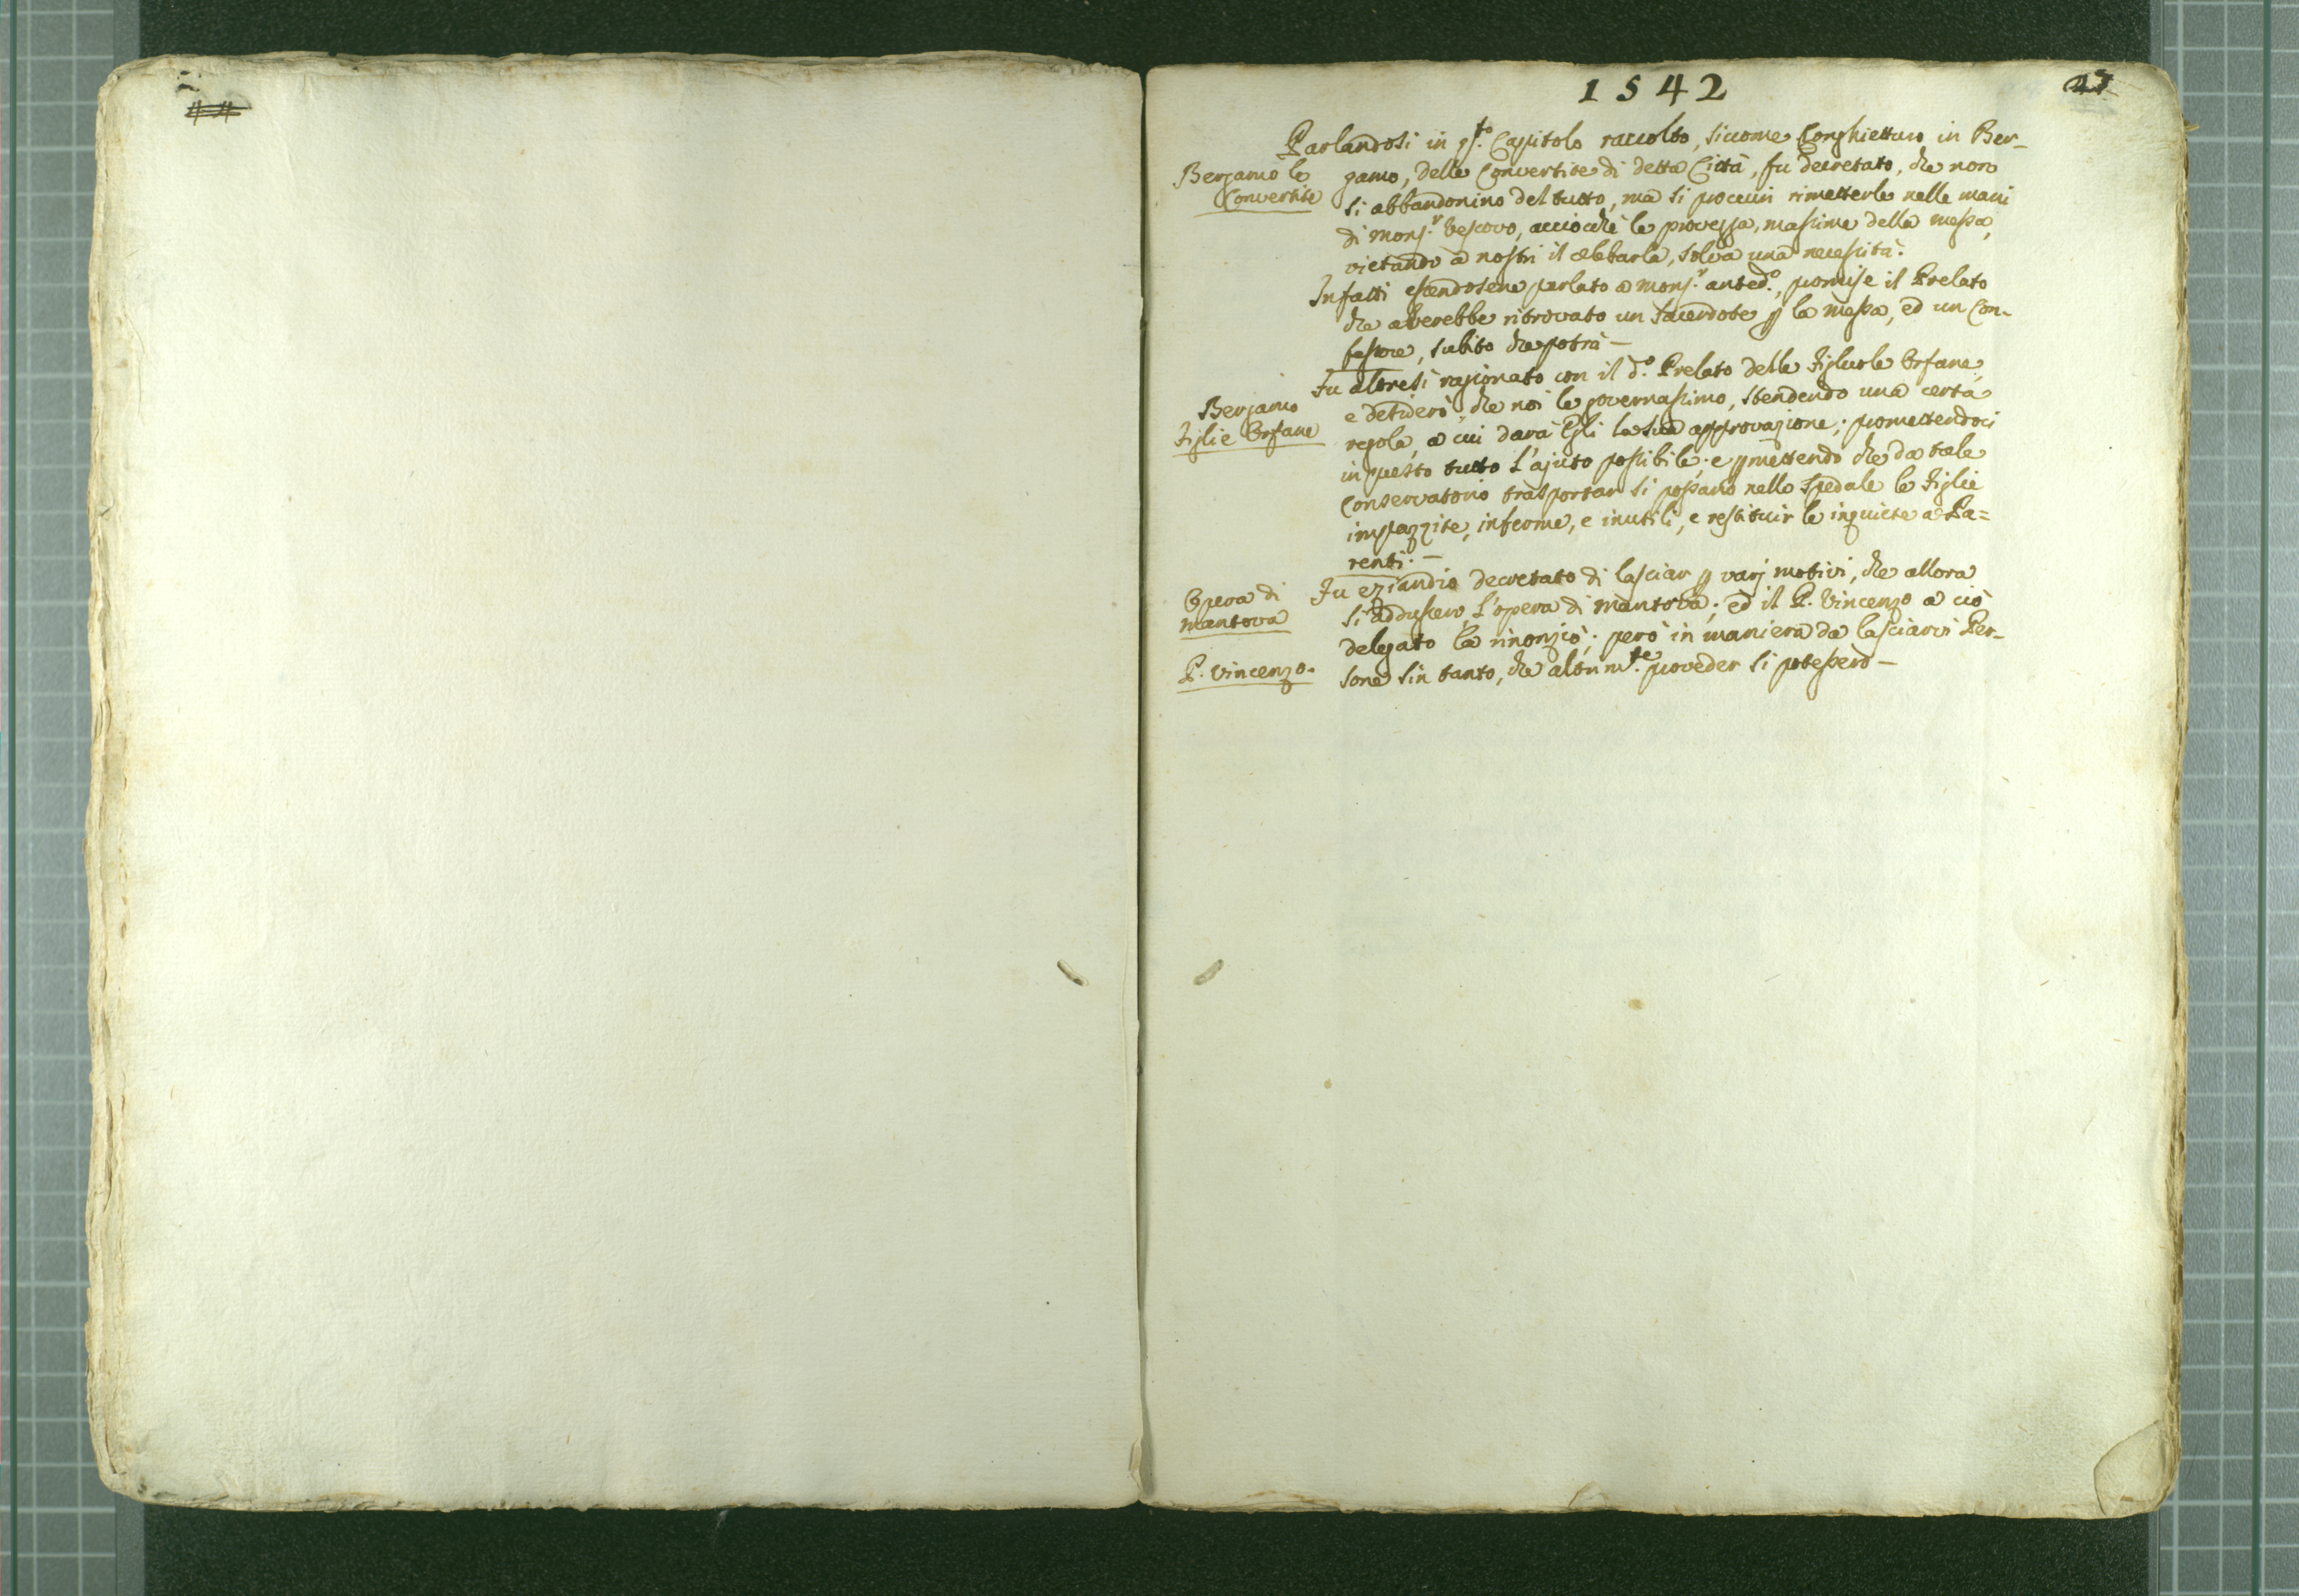 1542
27
Parlandosi in q.to Capitolo raccolto, siccome Conghietturo in Ber-
Bergamo le
Convertite
gamo, delle Convertite di detta Città, fu decretato, che non
si abbandonino del tutto, ma si procuri rimetterle nelle mani
di Mons.r Vescovo, acciocchè le provegga, massime della messa,
vietando a nostri il celebrarla, salva una necessità.
Infatti essendosene parlato a Mons.r anted.o, promise il Prelato
che averebbe ritrovato un Sacerdote p la messa, ed un Con-
fessore, subito che potrà —
Bergamo
Figlie Orfane
Fu altresì ragionato con il d.o Prelato delle Figliuole Orfane,
e desiderò, che noi le governassimo, stendendo una certa
regola, a cui darà Egli la sua approvazione; promettendoci
in questo tutto l'ajuto possibile; e pmettendo che da tale
Conservatorio trasportar si possano nello Spedale le Figlie
impazzite, inferme, e inutili, e restituir le inquiete a Pa=
renti. —
Opera di
Mantova
Fu eziandio decretato di lasciar p varj motivi, che allora
si addussero, l'opera di Mantova; ed il P. Vincenzo a ciò
P. Vincenzo.
delegato la rinonziò; però in maniera da lasciarvi Per-
sone sin tanto, che altrim.te proveder si potessero —